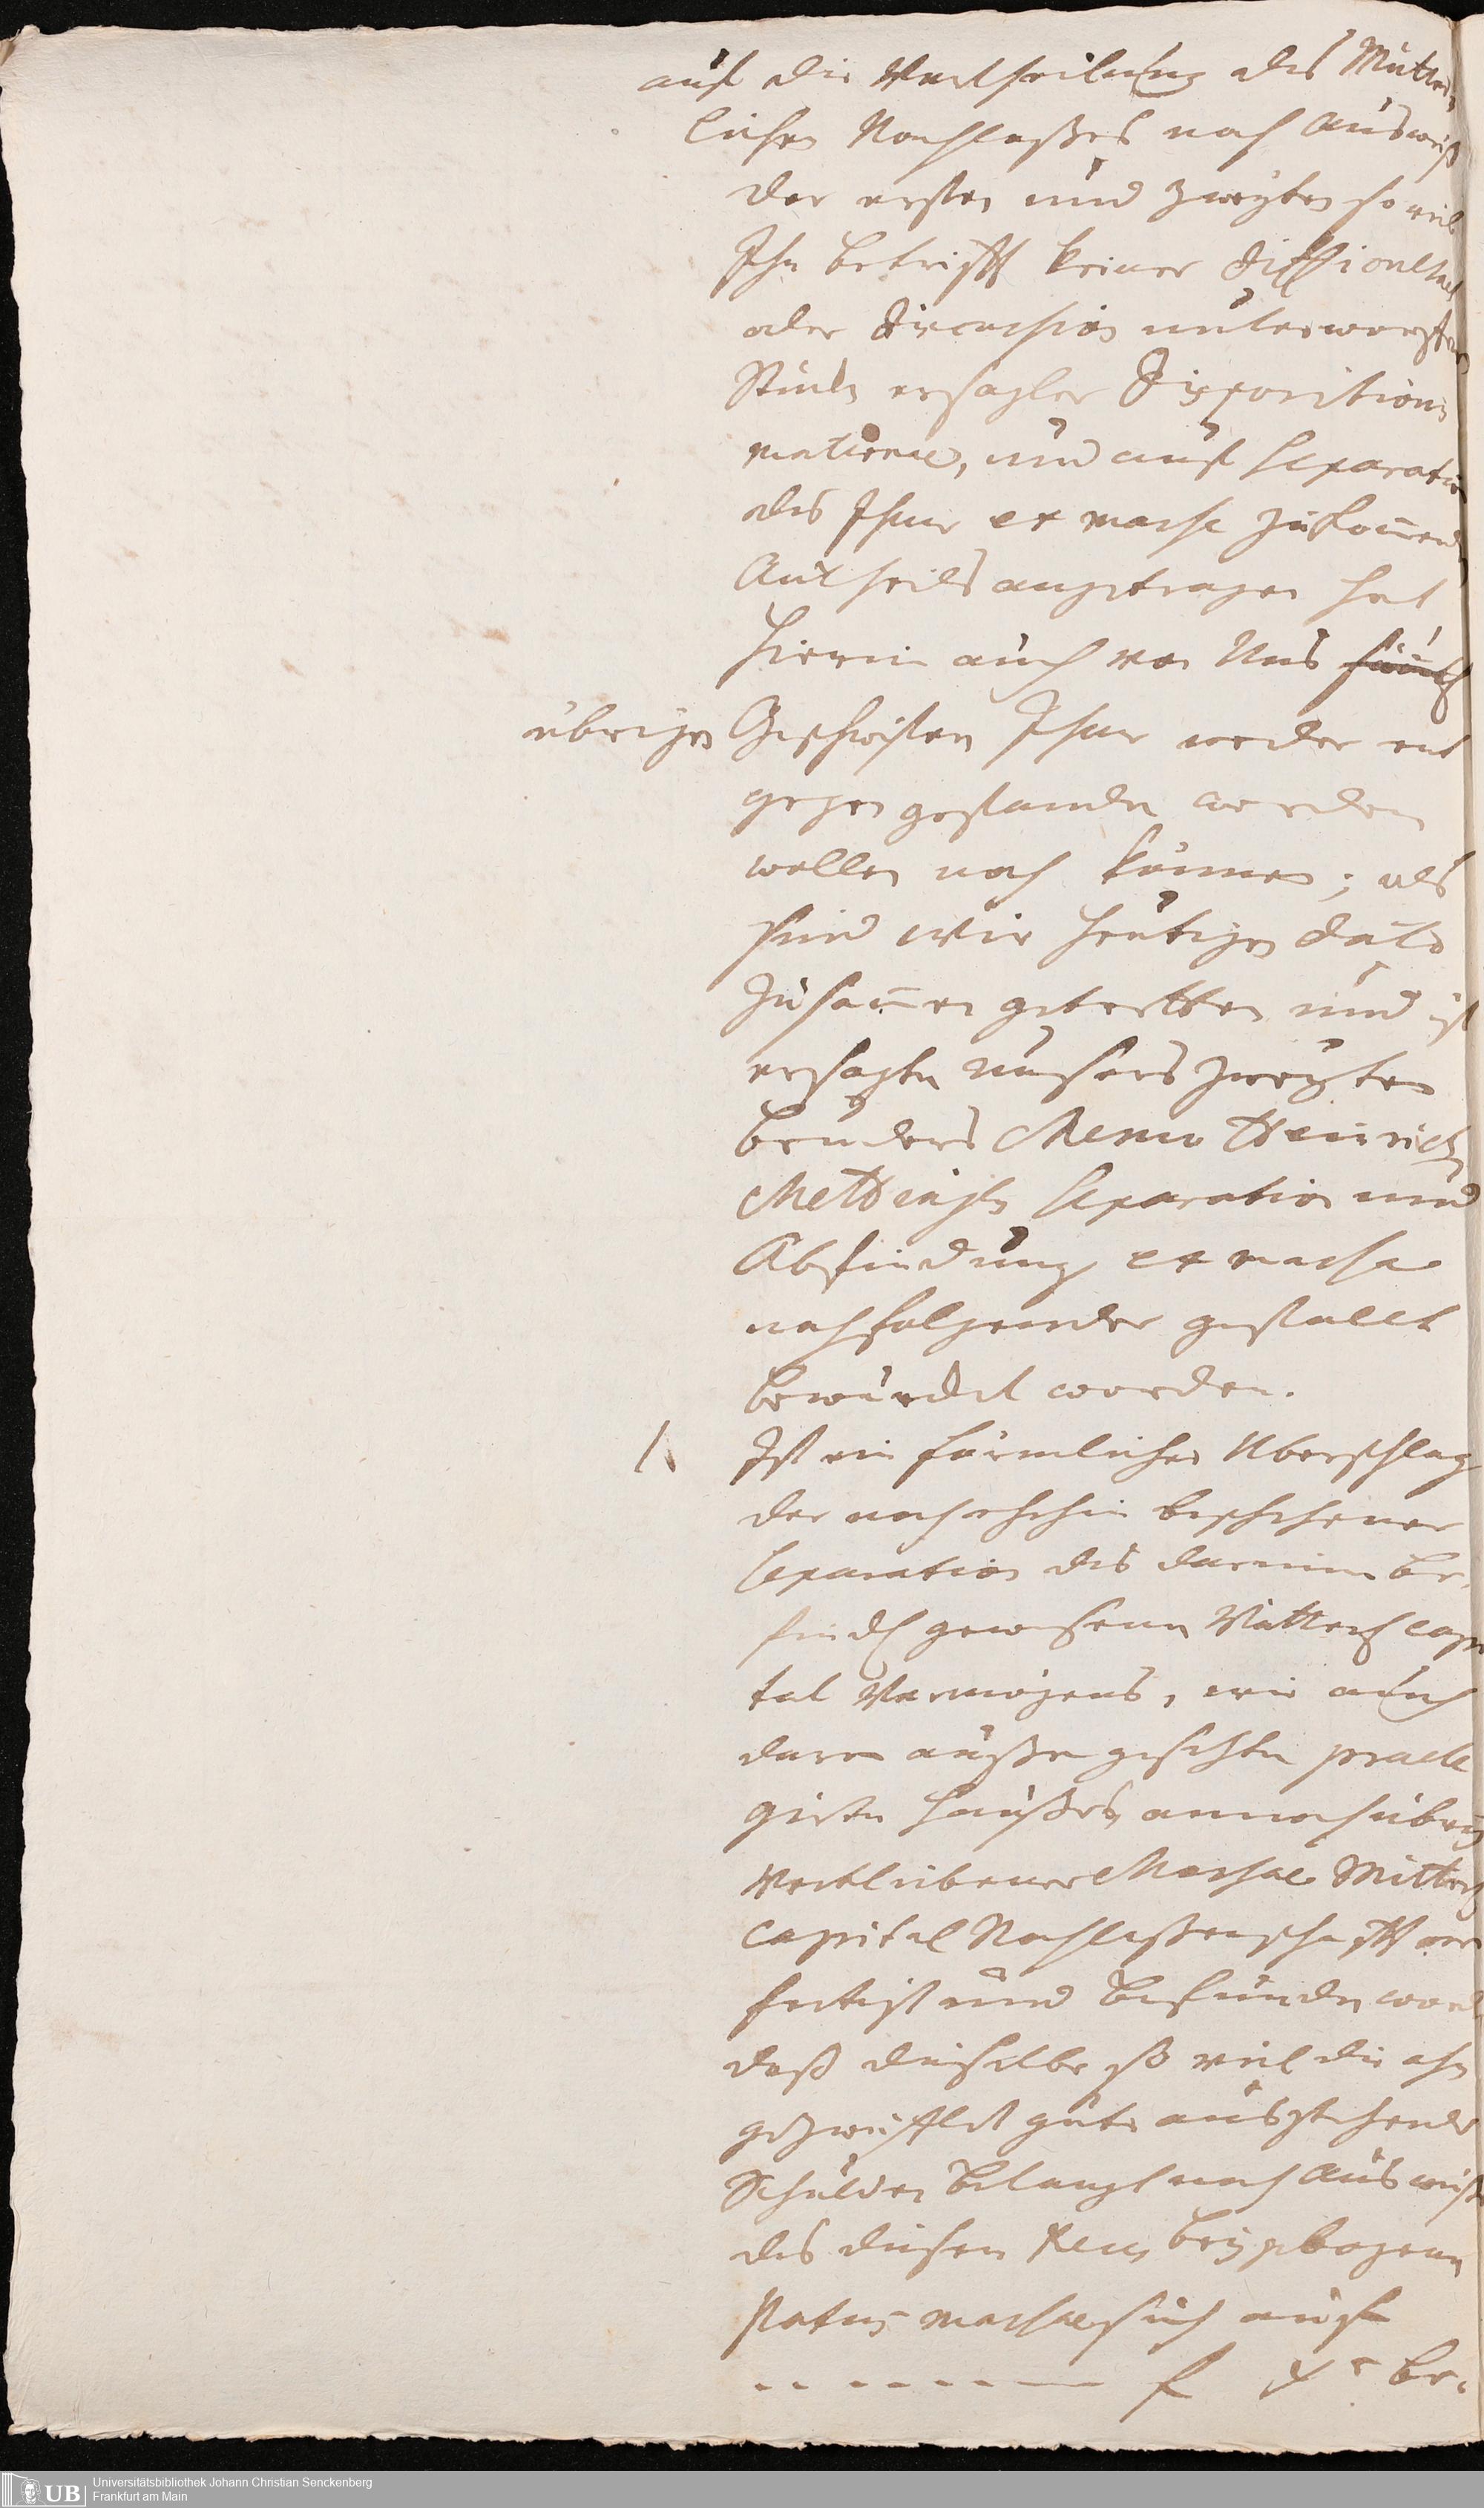 auf die Vertheilung des Mütter,
lichen Nachlaßes nach Ausweiß
der ersten und zweyten so viel
Ihn betrifft keiner Difficultaet
oder Discussion unterworffen
Stück ersagter Disposition
maternae, und auf Separation
des Ihme ex massa zukom̅end
Antheils angetragen hat
hierin auch von Uns
übrigen Geschwistern Ihme weder ent
gegen gestanden werden
wollen noch können; als
sind wir heutigen dato
zusam̅en getretten und ist
ersagten unsers zweyten
Bruders Remi Heinrich
Mettenigh Separation und
Abfindung ex massa
nachfolgender gestallt
bewürcket worden.
1 Ist ein förmlicher Uberschlag
der nach ehehin beschehener
Separation des darinnen be,
findl gewesenen Vätterl Capi
tal Vermögens, wie auch
deren außer gesetzten prael
girten Haußes, annoch übrig
verbliebener Massae Mütterl
Capital Nachlaßenschafft ver
fertigt und befunden word
daß dieselbe so viel die ohn
gezweiffelt gute ausstehende
Schulden belangt nach Ausweiß
des diesem beygebogenen
Status massae sich auf
f xr be,
Universitätsbibliothek Johann Christian Senckenberg
Frankfurt am Main
UB